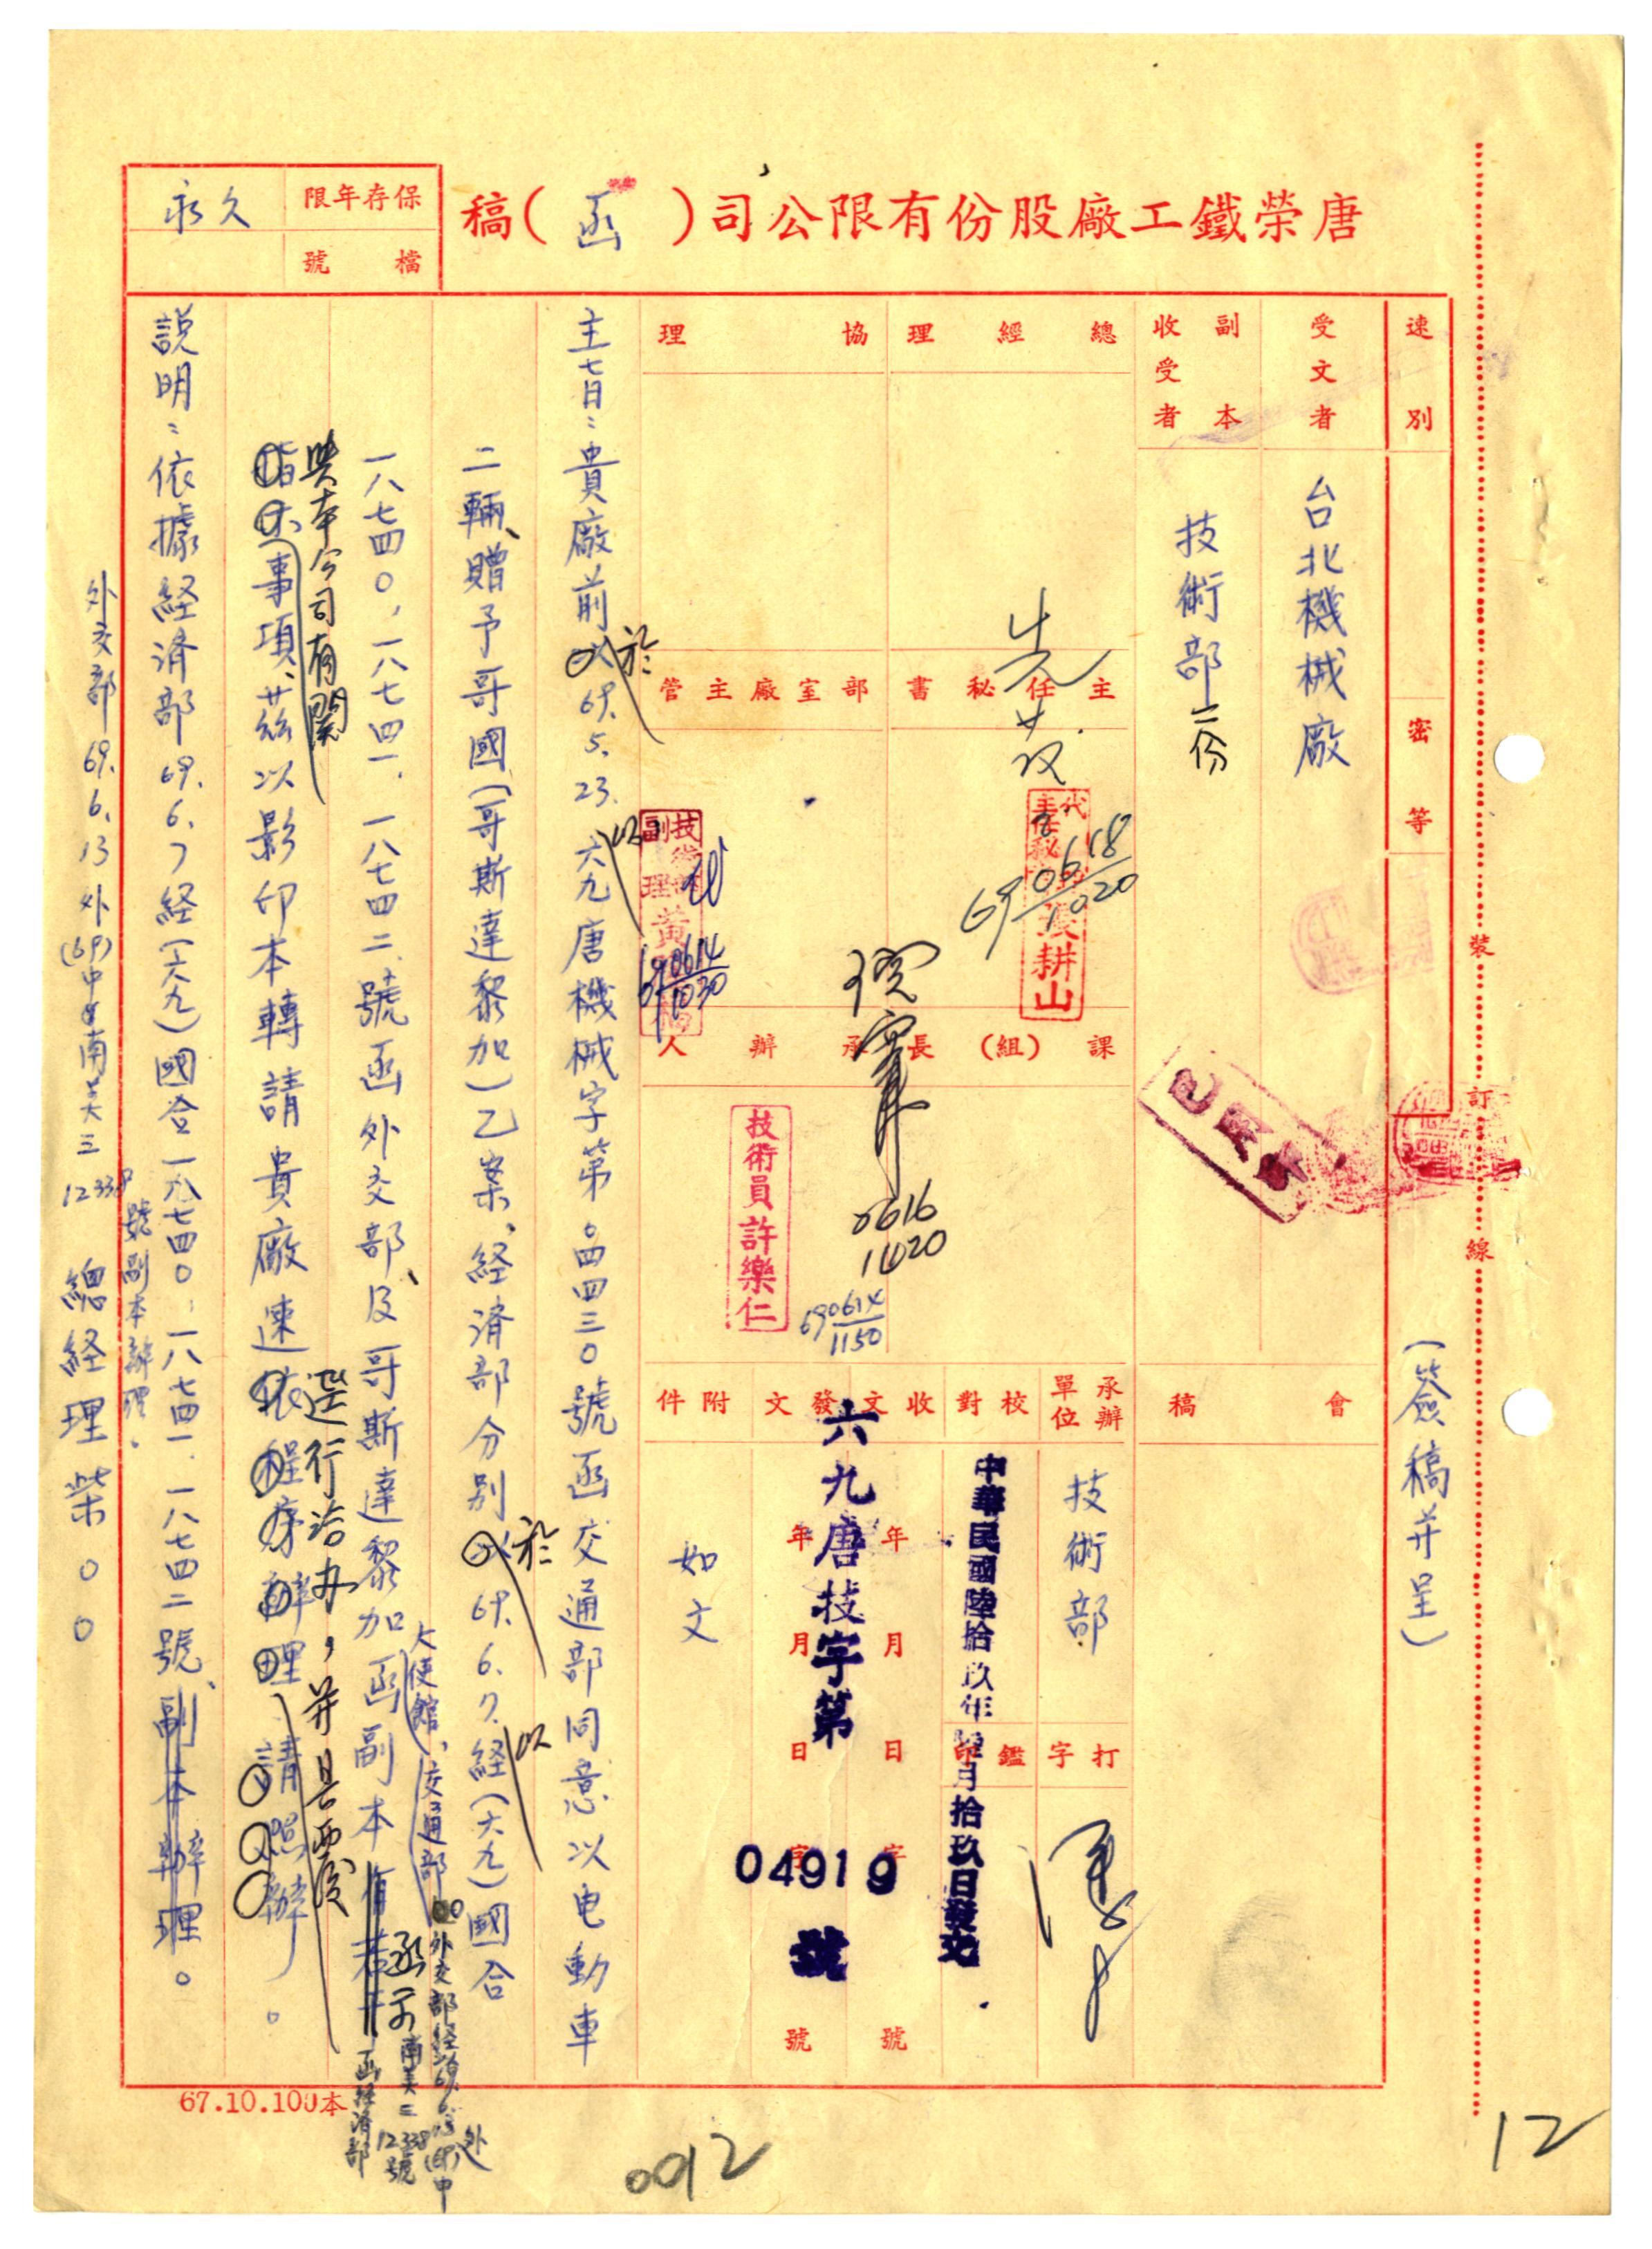 唐榮鐵工廠股份有限公司（函）稿
保存年限
永久
檔號
速別
密等
受文者
台北機械廠
副本收受者
技術部二份
總經理
協理
主任秘書
部室廠主管
課(組)長
承辦人
先發
代主任秘書
耕山
69 0618
1020
技術部副理黃
69 0614
1030
0616
1420
技術員許樂仁
69 0614
1150
已用印
會稿
承辦單位
技術部
校對
打字
鑑印
收文
年月日字號
發文
年月日字號
附件
如文
中華民國陸拾玖年陸月拾玖日發文
六九唐技字第
04919
號
裝訂線
（簽稿并呈）
主旨：貴廠前於69.5.23.以六九唐機械字第0四四三0號函交通部同意以电動車
二輛、贈予哥國(哥斯達黎加)乙案、経済部分別於69.6.7.以経(六九)國合
一八七四0，一八七四一、一八七四二、號函外交部、及哥斯達黎加
大使館、交通部
函副本
外交部経
南美三
12338號
函経済部
承示
與本公司有關
事項、茲以影印本轉請貴廠速
逕行洽办，并見覆
依程序辦理、請照辦。
説明：依據経済部69.6.7経(六九)國合一八七四0、一八七四一、一八七四二號、副本辦理。
外交部69.6.13外(69)中南美三12338號副本辦理。
總経理柴00
67.10.100本
0012
12